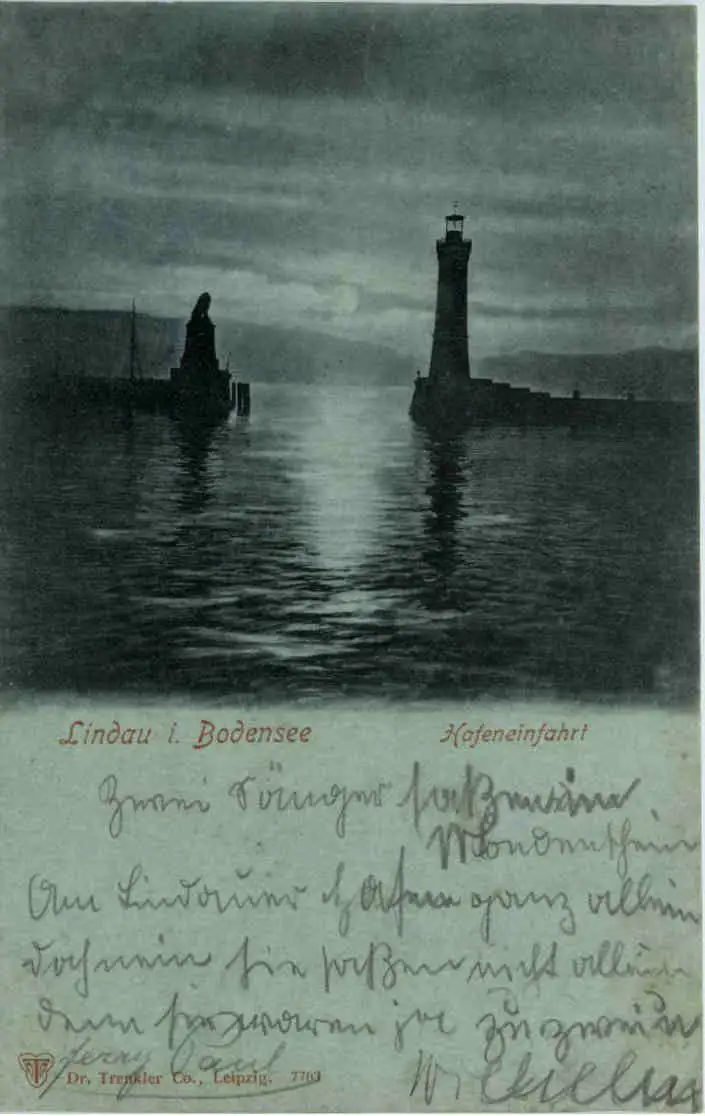 Lindau i. Bodensee Hafeneinfahrt
Zwei Sänger saßen im
Mondenschein
Am Lindauer Hafen ganz allein
doch nein sie saßen nicht allein
denn sie waren ja zu zweien
Dr. Trenkler Co., Leipzig. 7763